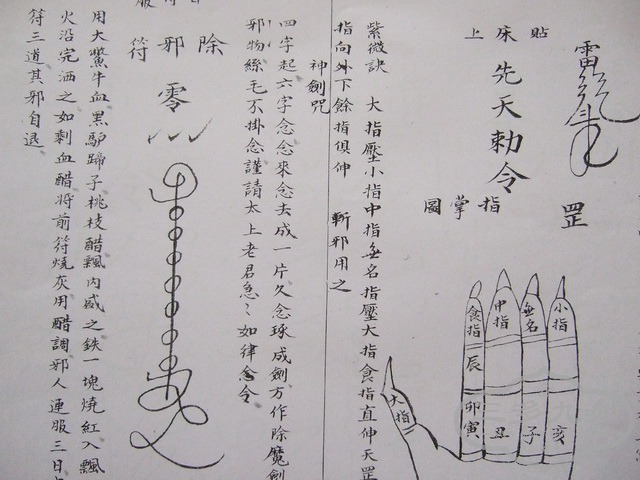 貼床上
先天勅令
罡
指掌圖
食指
中指
無名
小指
大指
辰
卯
寅
丑
子
亥
紫微訣　大指壓小指中指無名指壓大指食指直伸天罡
指向外下餘指俱伸　斬邪用之
神劍咒
四字起六字念念來念去成一片久念琢成劍方作除魔劍
邪物絲毛不掛念謹請太上老君急〻如律令
除邪符
零
用大鱉牛血黑驢蹄子桃枝醋飄內盛之鉄一塊燒紅入飄
火沿完洒之如剩血醋將前符燒灰用醋調邪人連服三日
符三道其邪自退